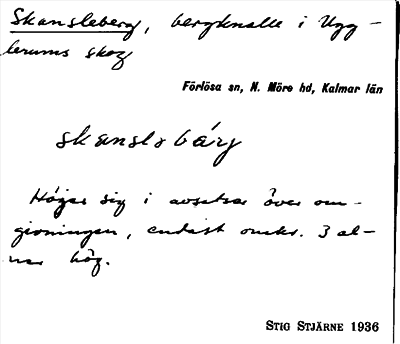 Skansleberg, bergknalle i Ugg-
lerums skog
Förlösa sn, N. Möre hd, Kalmar län
skanslə bárg
Höjer sig i avsatser över om-
givningen, endast omkr. 3 al-
nar hög.
STIG STJÄRNE 1936